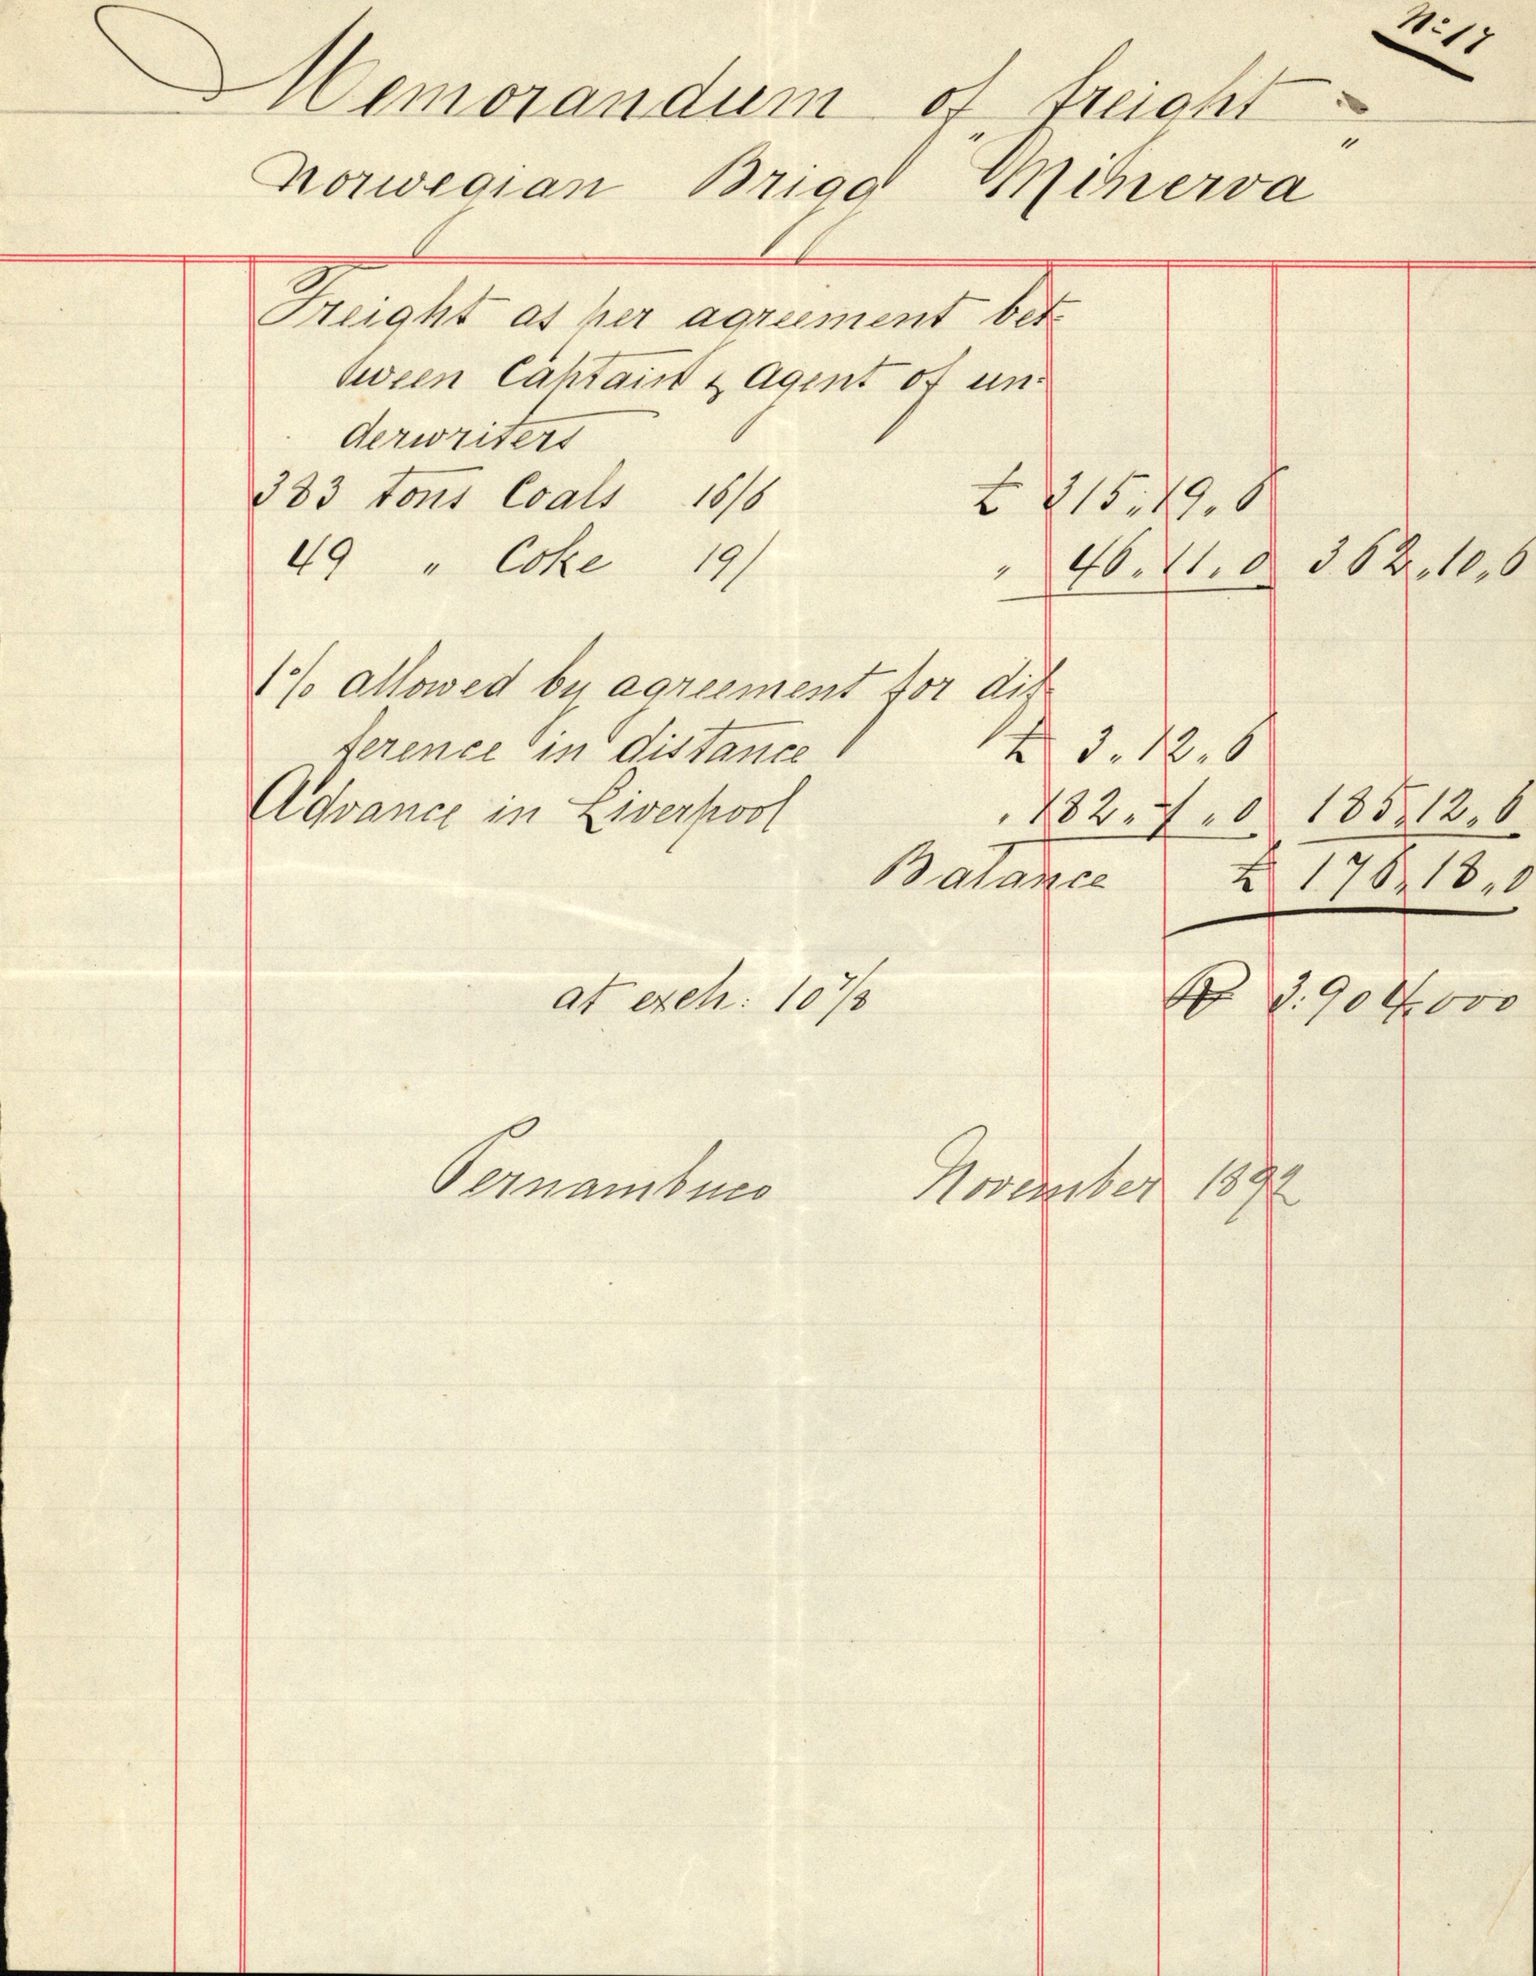 No: 17
Memorandum of freight
Norwegian Brigg "Minerva"
Freight as per agreement bet-
tween Captain & Agent of un-
derwriters
383 tons Coals 16/6 £ 315.,19.,6
49 " Coke 19/ " 46.,11.,0 362.,10.,6
1% allowed by agreement for dif-
ference in distance £ 3.,12.,6
Advance in Liverpool " 182.,-.,0 185.,12.,6
Balance £ 176.,18.,0
at exch: 10 7/8 Rs 3:904,000
Pernambuco November 1892